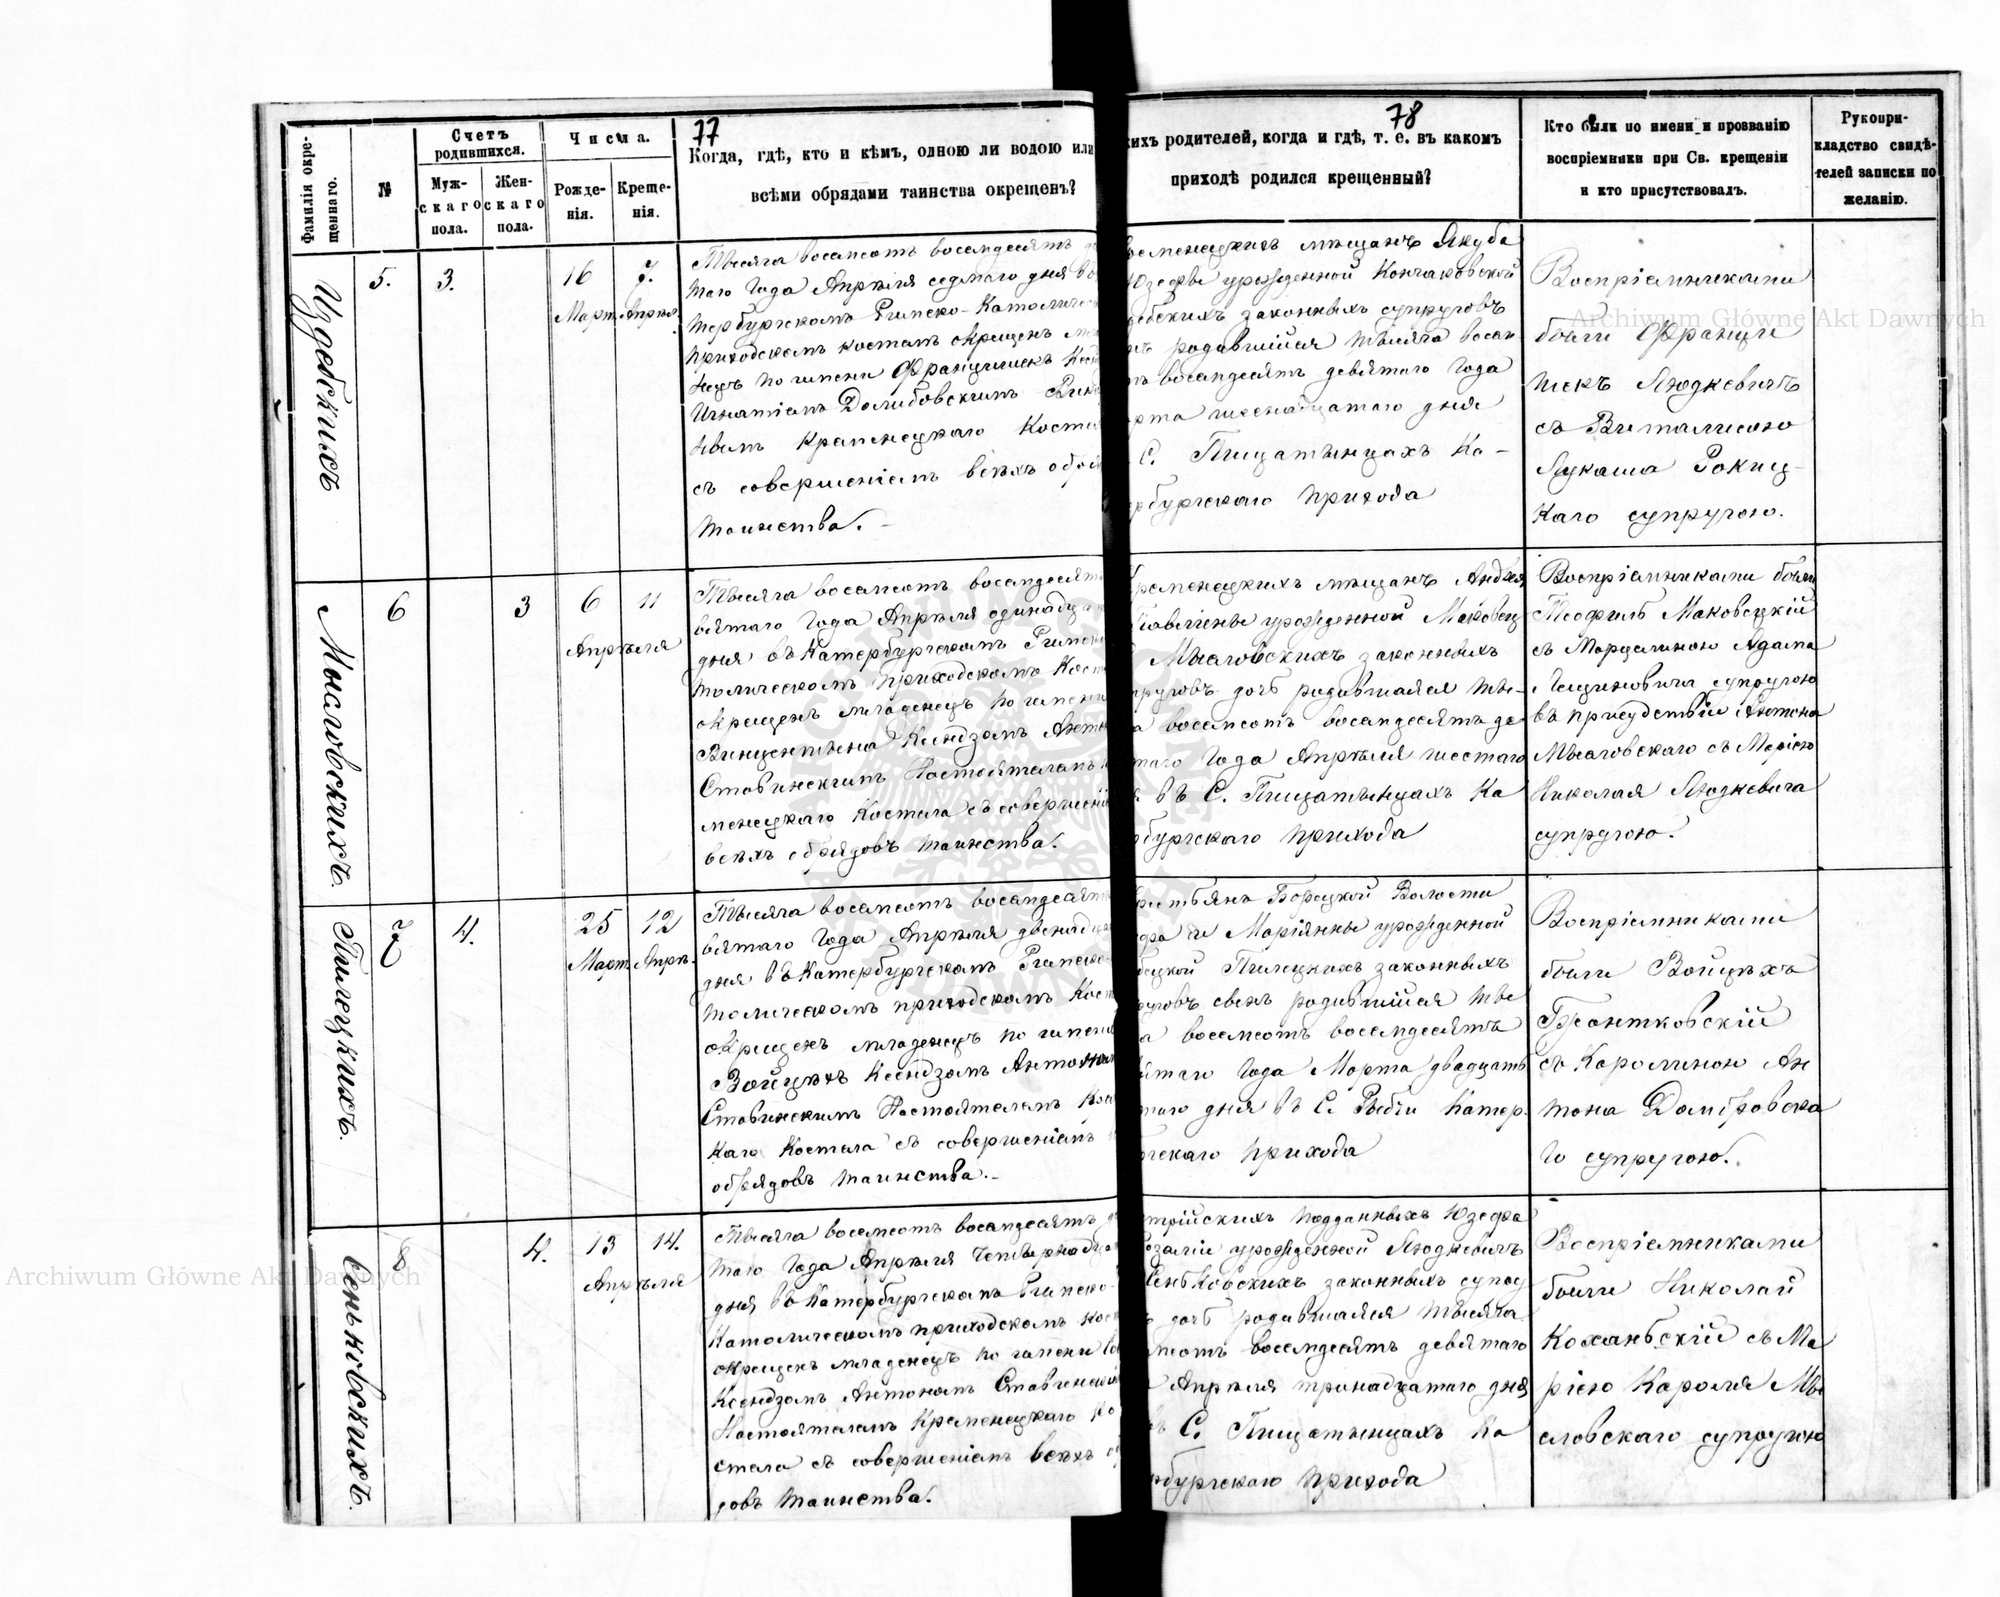 77
78
Фамилія окре-
щеннаго.
№
Счетъ
родившихся.
Муж-
скаго
пола.
Жен-
скаго
пола.
Числа.
Рожде-
нія.
Креще-
нія.
Когда, гдѣ, кто и кѣмъ, одною ли водою или
всѣми обрядами таинства окрещенъ?
кихъ родителей, когда и гдѣ, т. е. въ какомъ
приходѣ родился крещенный?
Кто были по имени и прозванію
воспріемники при Св. крещеніи
и кто присутствовалъ.
Рукопри-
кладство свидѣ-
телей записки по
желанію.
Издебскихъ
5.
3.
16
Март.
7.
Апрѣл.
Тысяча восемсотъ восемдесятъ
таго Года Апрѣля седмаго дня въ
тербургскомъ Римско-Католичес
приходскомъ костелѣ окрещенъ мла
нецъ по имени Францишекъ
Игнатіемъ Долибовскимъ
Кременецкаго Косте
съ совершеніемъ всѣхъ обря
таинства.-
еменецкихъ мѣщанъ Якуба
Юзефы урожденной Кончаковской
дебскихъ законныхъ супруговъ
родившійся тысяча восем
восемдесятъ девятаго Года
арта шеснадцатаго дня
С. Пищатынцахъ Ка-
ербургскаго прихода
Воспріемниками
были Франци
шекъ Людкевичъ
съ Виталисою
Лукаша Рокиц-
каго супругою.
Мысловскихъ.
6
3
6
11
Апрѣля
Тысяча восемсотъ восемдесят
вятаго Года Апрѣля одинадца
дня въ Катербургскомъ Римско
толическомъ приходскомъ Кост
окрещенъ младенецъ по имени
Винцентына Ксендзомъ Антон
Ставинскимъ Настоятелемъ
менецкаго Костела съ совершеніе
всѣхъ обрядовъ таинства.
Кременецкихъ мѣщанъ Андрея
Павлины урожденной Маковец
Мысловскихъ законныхъ
пруговъ дочь родившаяся ты-
а восемсотъ восемдесятъ де
таго Года Апрѣля шестаго
въ С. Пищатынцахъ Ка
бургскаго прихода
Воспріемниками были
Теофиль Маковецкій
съ Марцелиною Адама
Лещиновича супругою
въ присудствіи Антона
Мысловскаго съ Маріею
Николая Людкевича
супругою.
Пилецкихъ.
7
4.
25
Март.
12
Апрѣ.
Тысяча восемсотъ восемдесят
вятаго Года Апрѣля двенадца
дня въ Катербургскомъ Римско-
толическомъ приходскомъ Кост
окрещенъ младенецъ по имени
Войцѣхъ Ксендзомъ Антоном
Ставинскимъ Настоятелемъ
каго Костела съ совершеніемъ
обрядовъ таинства.-
рестьянъ Борецкой Волости
и Маріянны урожденной
Пилецкихъ законныхъ
руговъ сынъ родившійся ты
а восемсотъ восемдесятъ
ятаго Года Марта двадцать
таго дня въ С. Рыбчи Катер.
ргскаго прихода
Воспріемниками
были Войцѣхъ
Брантковскій
съ Каролиною Ан
тона Домбровска
го супругою.
Сеньковскихъ.
8
4.
13
14.
Апрѣля
Тысяча восемсотъ восемдесятъ де
таго Года Апрѣля четырнадца
дня въ Катербургскомъ Римско-
Католическомъ приходскомъ кост
окрещенъ младенецъ по имени
Ксендзомъ Антономъ Ставинский
Настоятелемъ Кременецкаго Ко
стела съ совершеніемъ всѣхъ об
довъ таинства.
стрійскихъ подданныхъ Юзефа
Розаліи урожденной Людкевичъ
Сеньковскихъ законныхъ супру
дочь родившаяся тысяча
емсотъ восемдесятъ девятаго
Апрѣля тринадцатаго дня
въ С. Пищатынцахъ Ка
рбургскаго прихода
Воспріемниками
были Николай
Коханьскій съ Ма
ріею Кароля Мы
словскаго супругою
Archiwum Główne Akt Dawnych
Archiwum Główne Akt Dawnych